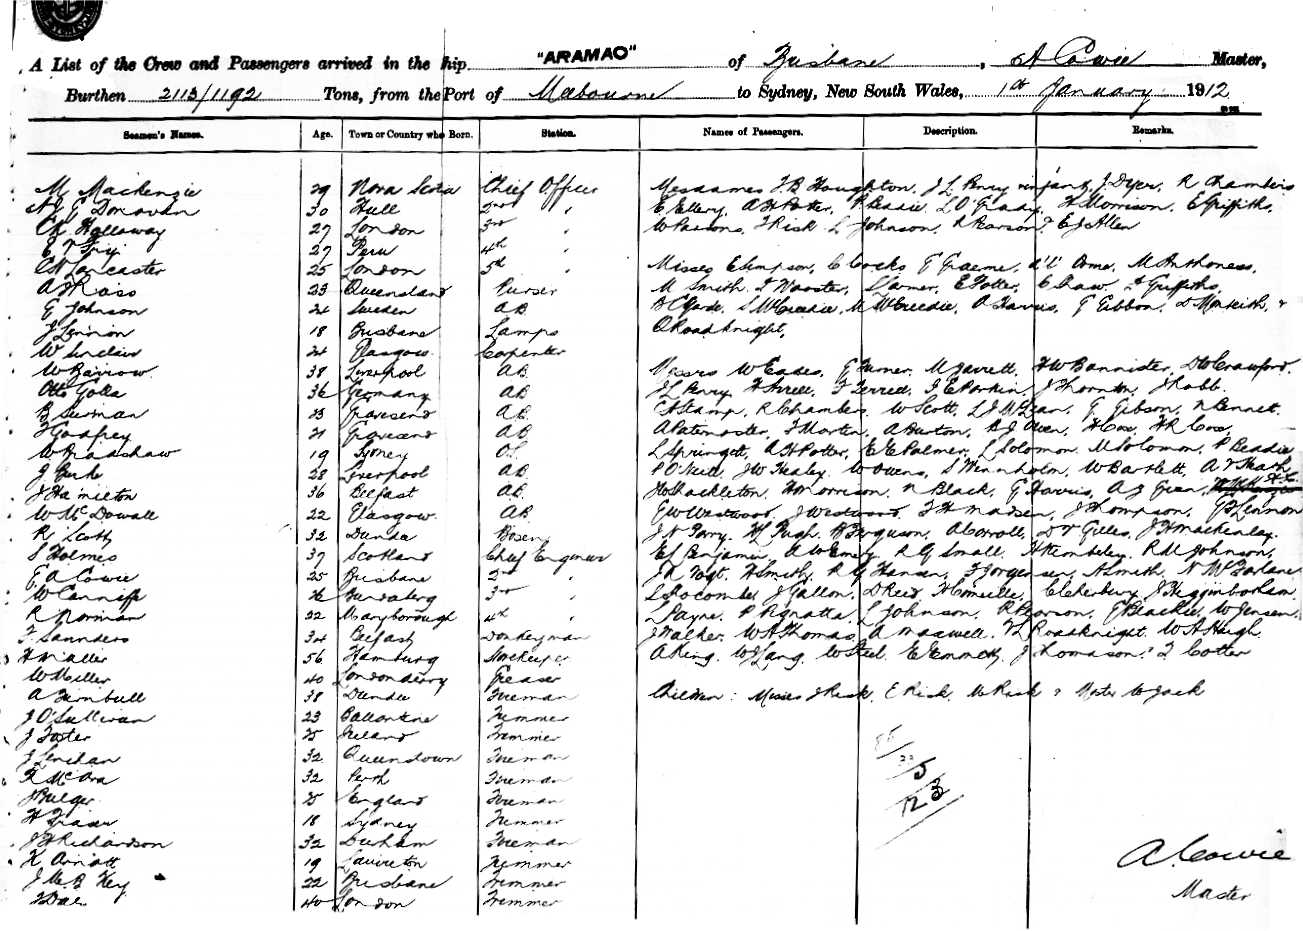 A List of the Crew and Passengers arrived in the ship "ARAMAO" of Brisbane, A Cowie Master,
Burthen 2113/1192 Tons, from the Port of Melbourne to Sydney, New South Wales, 1st January 1912
Seamen's Names. Age. Town or Country where Born. Station. Names of Passengers. Description. Remarks.
M Mackenzie 29 Nova Scotia Chief Officer Mesdames F B Houghton, J L Penry infant, J Dyer, R Chambers
Donovan 30 Hull 2nd " E Ellery, A H Potter, P Beadie, L O'Grady, H Morrison, E Griffiths,
Holloway 27 London 3rd " W Parsons, F Risk, L Johnson, R Pearson & E J Allen
27 Peru 4th "
Lancaster 25 London 5th " Misses E Simpson, C Cocks, G Graeme, M Anthoness,
A Ross 23 Queensland Purser M Smith, F Wooster, E Potter, E Shaw, Griffiths,
G Johnson 24 Sweden AB McCreedie, McCreedie, A Harris, G Gibbon, &
J Lennion 18 Brisbane Lamps O Roadknight,
W Sinclair 24 Glasgow Carpenter
W Barrow 38 Liverpool AB Messrs W Eades, G Turner, M Jarrett, H W Bannister, Crawford
Otto 36 Germany AB J L Penry, F E Parkin, J Thornton, J Robb
B Seerman 23 Gravesend AB Stamp, R Chambers, W Scott, L J McLean, G Gibson, N Bennett
Godfrey 21 Gravesend AB A Paternoster, F Martin, A Burton, Owen, H Cox, H R Cox,
W Bradshaw 19 Sydney OS L Springett, A H Potter, E E Palmer, L Solomon, M Solomon, P Beadie
J 28 Liverpool AB P O'Neill, J W Healey, W Owens, S Winnholm, W Bartlett, A V Heath
J Hamilton 36 Belfast AB Shackleton, H Morrison, N Black, G Harris, A J Green,
W McDowall 22 Glasgow AB G W Westwood, J Westwood, F H Madsen, J Thompson, Lennon
R Scott 32 Dundee Bosen W Pugh, Ferguson, A Carroll, Gilles, J H Mackenlay
S Holmes 37 Scotland Chief Engineer E L Benjamin, A W Emery, R G Small, H Kembeley, R M Johnson,
E A Cowie 25 Brisbane 2nd " H Smith, R G Hansen, F Jorgensen, A Smith, N McFarlane
W Cunniff 26 Bundaberg 3rd " L Slocombe, J Gallon, D Reid, H Conselle, C Clethebury, J Higginbotham
R Norman 22 Maryborough 4th " L Payne, P Pignatta, L Johnson, R Pearson, G Blackie, W Jensen
F Saunders 34 Belfast Donkeyman J Walker, W H Thomas, A Maxwell, Roadknight, W A Haigh
H Haller 56 Hamburg Storekeeper A King, W Lang, W Steel, E Emmett, J Thomason & F Cotter
W Miller 40 Londonderry Greaser
A Turnbull 38 Dundee Fireman Children: Misses J Risk, E Risk, M Risk & Master W Jack
J O'Sullivan 23 Ballantine Trimmer
J Foster 25 Ireland Trimmer
J Lenihan 32 Queenstown Fireman
R McAra 32 Perth Fireman
J Bulger 25 England Fireman
H Fraser 18 Sydney Trimmer
J H Richardson 32 Durham Fireman
K Arnott 19 Trimmer
J McB Key 22 Brisbane Trimmer
F Dale 40 London Trimmer
123
A. Cowie
Master